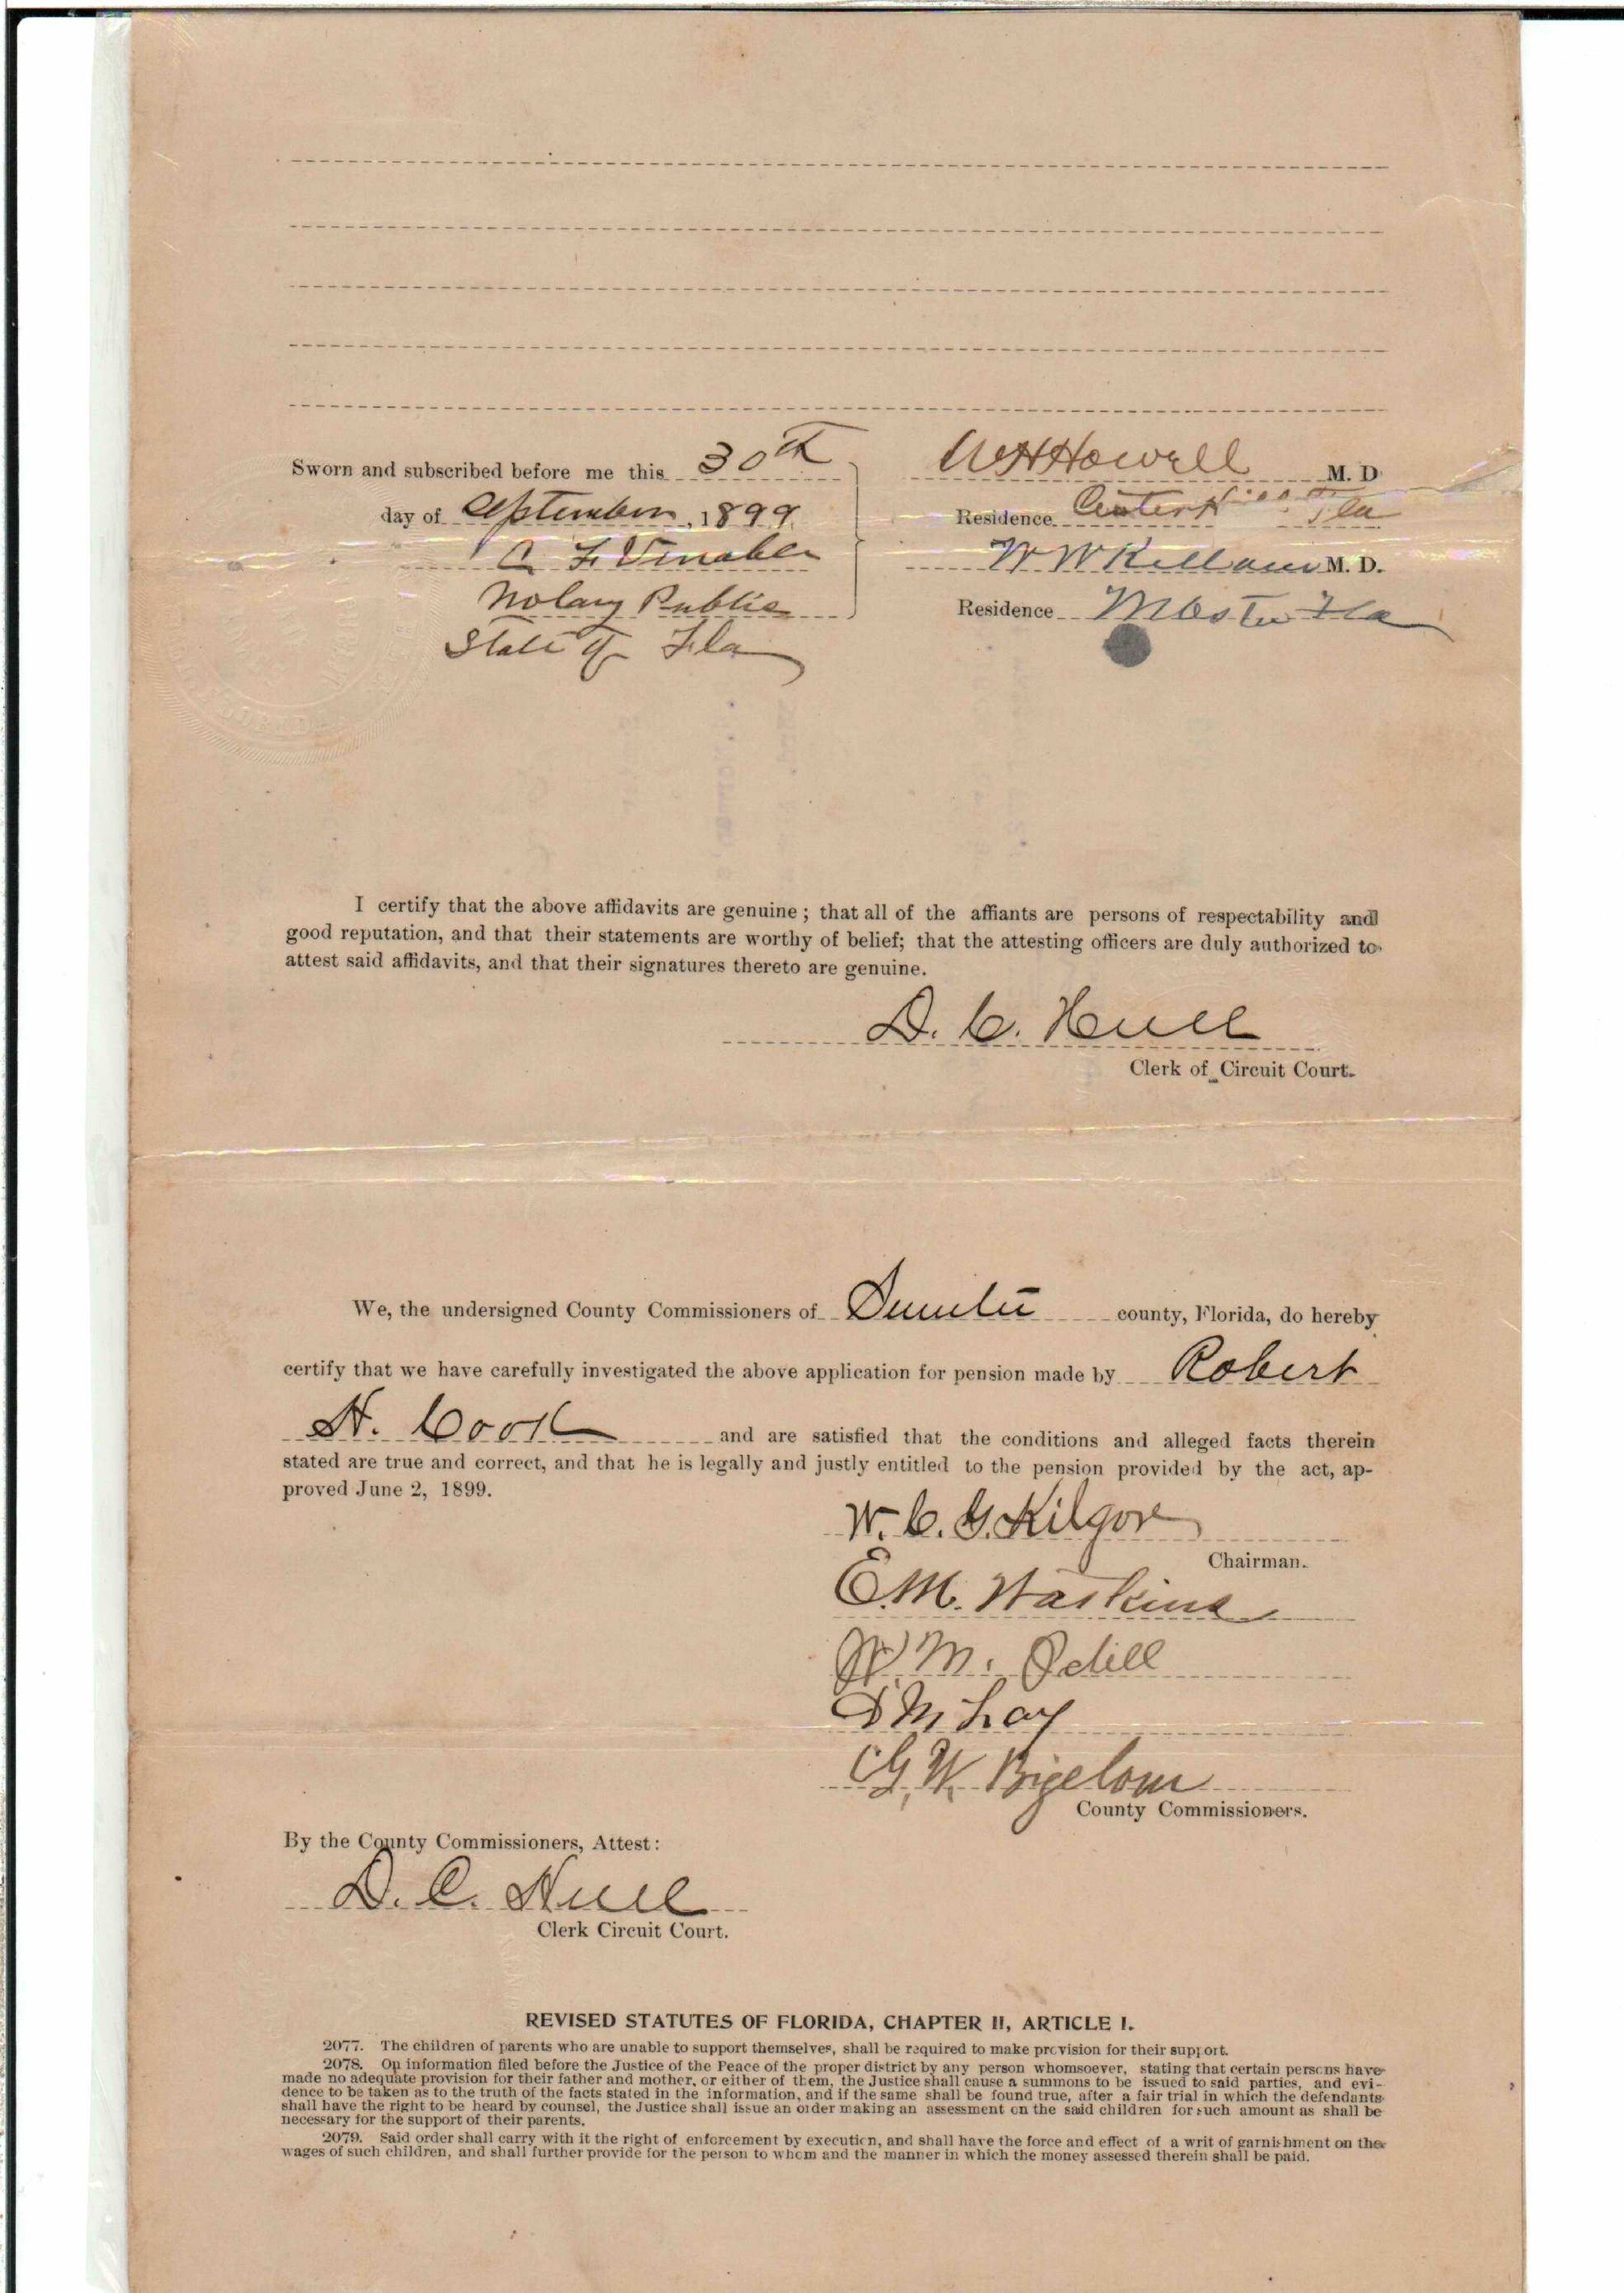 Sworn and subscribed before me this 30th
day of September, 1899
Notary Public
State of Fla
W H Howell M. D.
Residence Center Hill Fla
W W Kellam M. D.
Residence Fla
I certify that the above affidavits are genuine; that all of the affiants are persons of respectability and
good reputation, and that their statements are worthy of belief; that the attesting officers are duly authorized to
attest said affidavits, and that their signatures thereto are genuine.
D. C. Hull
Clerk of Circuit Court.
We, the undersigned County Commissioners of Sumter county, Florida, do hereby
certify that we have carefully investigated the above application for pension made by Robert
H. Cook and are satisfied that the conditions and alleged facts therein
stated are true and correct, and that he is legally and justly entitled to the pension provided by the act, ap-
proved June 2, 1899.
W. C. G. Kilgore
Chairman.
E. M. Haskins
W. M. Odell
M Lay
G. W. Bigelow
County Commissioners.
By the County Commissioners, Attest:
D. C. Hull
Clerk Circuit Court.
REVISED STATUTES OF FLORIDA, CHAPTER II, ARTICLE I.
2077. The children of parents who are unable to support themselves, shall be required to make provision for their support.
2078. On information filed before the Justice of the Peace of the proper district by any person whomsoever, stating that certain persons have
made no adequate provision for their father and mother, or either of them, the Justice shall cause a summons to be issued to said parties, and evi-
dence to be taken as to the truth of the facts stated in the information, and if the same shall be found true, after a fair trial in which the defendants
shall have the right to be heard by counsel, the Justice shall issue an order making an assessment on the said children for such amount as shall be
necessary for the support of their parents.
2079. Said order shall carry with it the right of enforcement by execution, and shall have the force and effect of a writ of garnishment on the
wages of such children, and shall further provide for the person to whom and the manner in which the money assessed therein shall be paid.